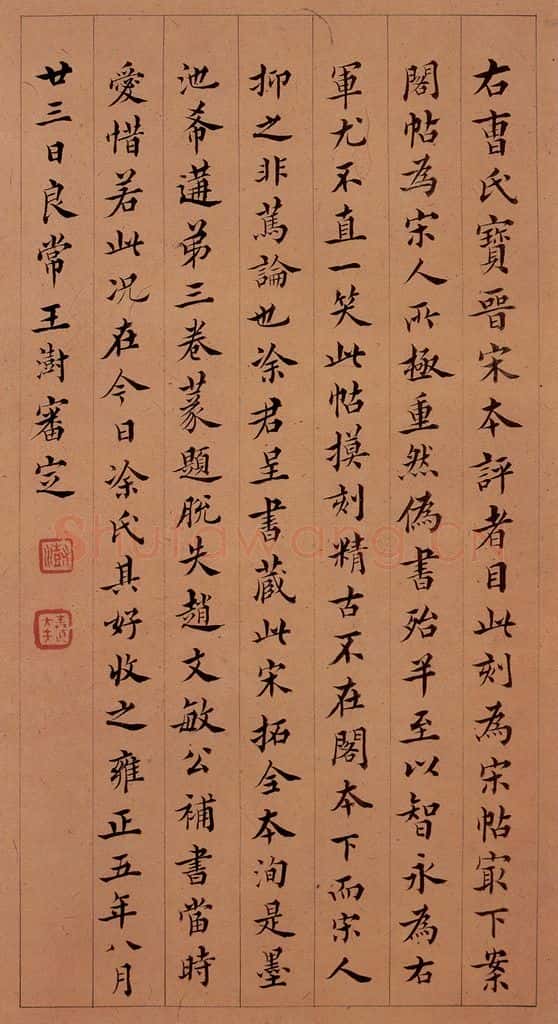 右曹氏寶晉宋本評者目此刻為宋帖㝡下案
閣帖為宋人所極重然偽書殆半至以智永為右
軍尤不直一笑此帖摸刻精古不在閣本下而宋人
抑之非篤論也涂君呈書蔵此宋拓全本洵是墨
池希遘弟三卷篆題脫失趙文敏公補書當時
愛惜若此况在今日涂氏其好收之雍正五年八月
廿三日良常王澍審定
Shufawang.cn